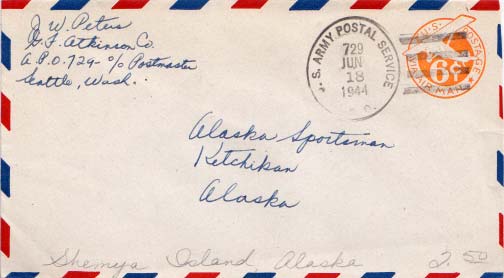 J. W. Peters
G. F. Atkinson Co.
A.P.O. 729 - c/o Postmaster
Seattle, Wash.
U. S. ARMY POSTAL SERVICE
729
JUN
18
1944
U.S. POSTAGE
6¢
VIA AIR MAIL
Alaska Sportsman
Ketchikan
Alaska
Shemya Island, Alaska 2.50